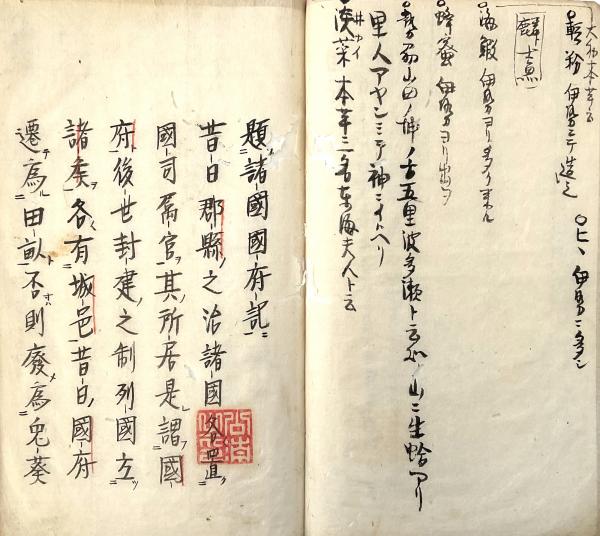 大和本草云
軽粉 伊勢ニテ造之
○ヒヽ 伊勢ニ多シ
麟意
海鰕 伊勢ヨリ多ク来ル
蜂蜜 伊勢ヨリ出ヅ
山ノ古五里波多瀬ト云処ノ山ニ生蛤アリ
里人アヤシミテ神ニイトヘリ
淡菜 本草ニ名東海夫人ト云
題諸國國府記
昔日郡縣之治諸國各置
國司属官其所居是謂國
府後世封建之制列國立
諸矦各有城邑昔日國府
遷為田畝否則廢為兎葵